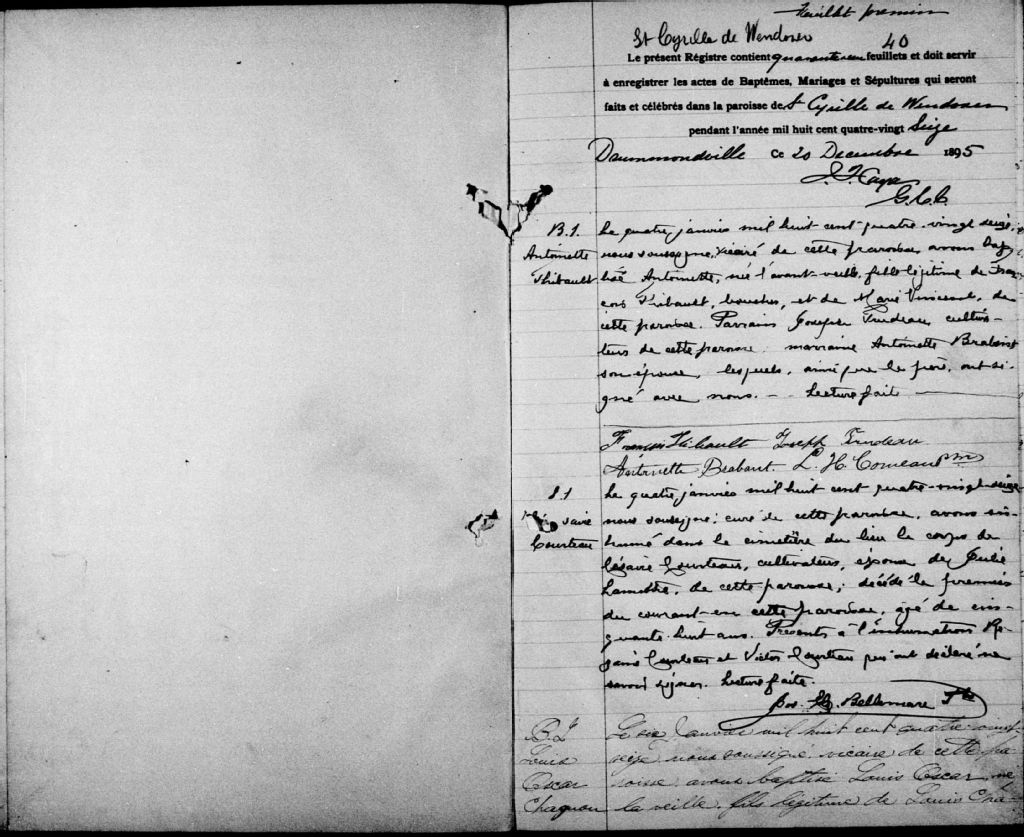 Feuillet premier
St Cyrille de Wendover
40
Le présent Régistre contient quarante feuillets et doit servir
à enregistrer les actes de Baptêmes, Mariages et Sépultures qui seront
faits et célébrés dans la paroisse de St Cyrille de Wendover
pendant l'année mil huit cent quatre-vingt Seize
Drummondville Ce 20 Decembre 1895
G.C.C.
B.1. Le quatre janvier mil huit cent quatre-vingt seize,
Antoinette nous soussigné, vicaire de cette paroisse, avons bap-
Thibault tisé Antoinette, née l'avant-veille, fille légitime de Fran-
çois Thibault, boucher, et de Marie Vincent, de
cette paroisse. Parrain Joseph Trudeau, cultiva-
teur de cette paroisse, marraine Antoinette Brabant
son épouse, lesquels, ainsi que le père, ont si-
gné avec nous. - Lecture faite
François Thibault Joseph Trudeau
Antoinette Brabant L. H. Comeau ptre
S.1 Le quatre janvier mil huit cent quatre-vingt-seize
saire nous soussigné, curé de cette paroisse, avons in-
Courteau humé dans le cimetière du lieu le corps de
Césaire Courteau, cultivateur, époux de Julie
Lamothe, de cette paroisse, décédé le premier
du courant en cette paroisse, agé de cin-
quante-huit ans. Présents à l'inhumation
Courteau et Victor Courteau qui ont déclaré ne
savoir signer. Lecture faite.
Jos. Bellemare Ptre
B.2 Le six Janvier mil huit cent quatre vingt-
Louis seize nous soussigné vicaire de cette pa-
Oscar roisse avons baptisé Louis Oscar, né
Chagnon la veille, fils légitime de Louis Cha-